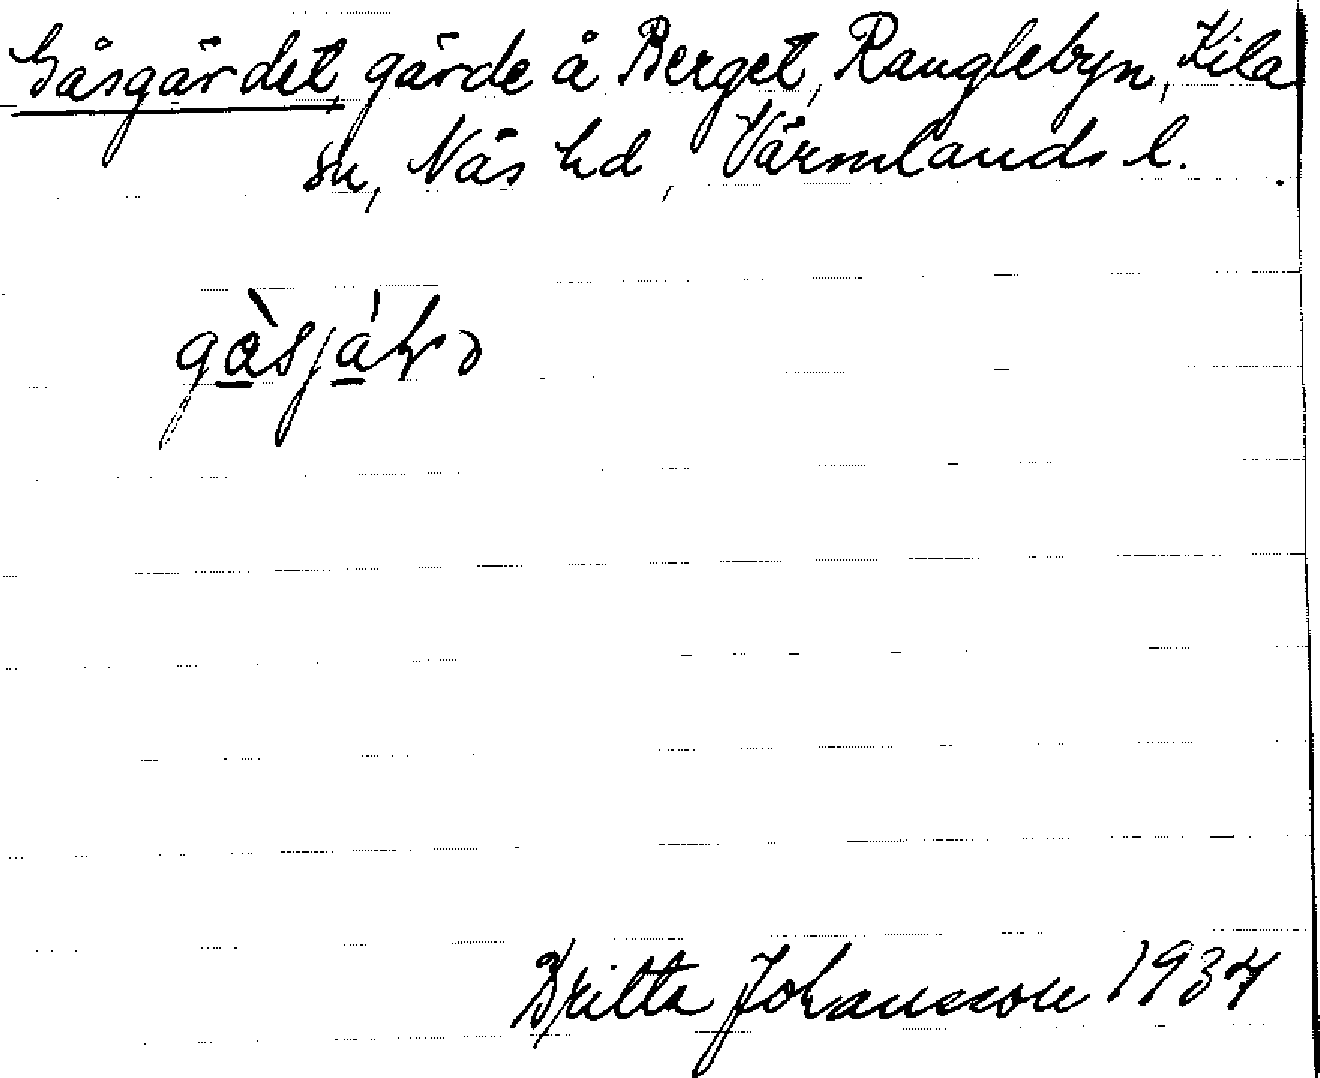 Gåsgärdet, gärde å Berget, Ranglebyn, Kila
sn, Näs hd, Värmlands l.
Britta Johansson 1937